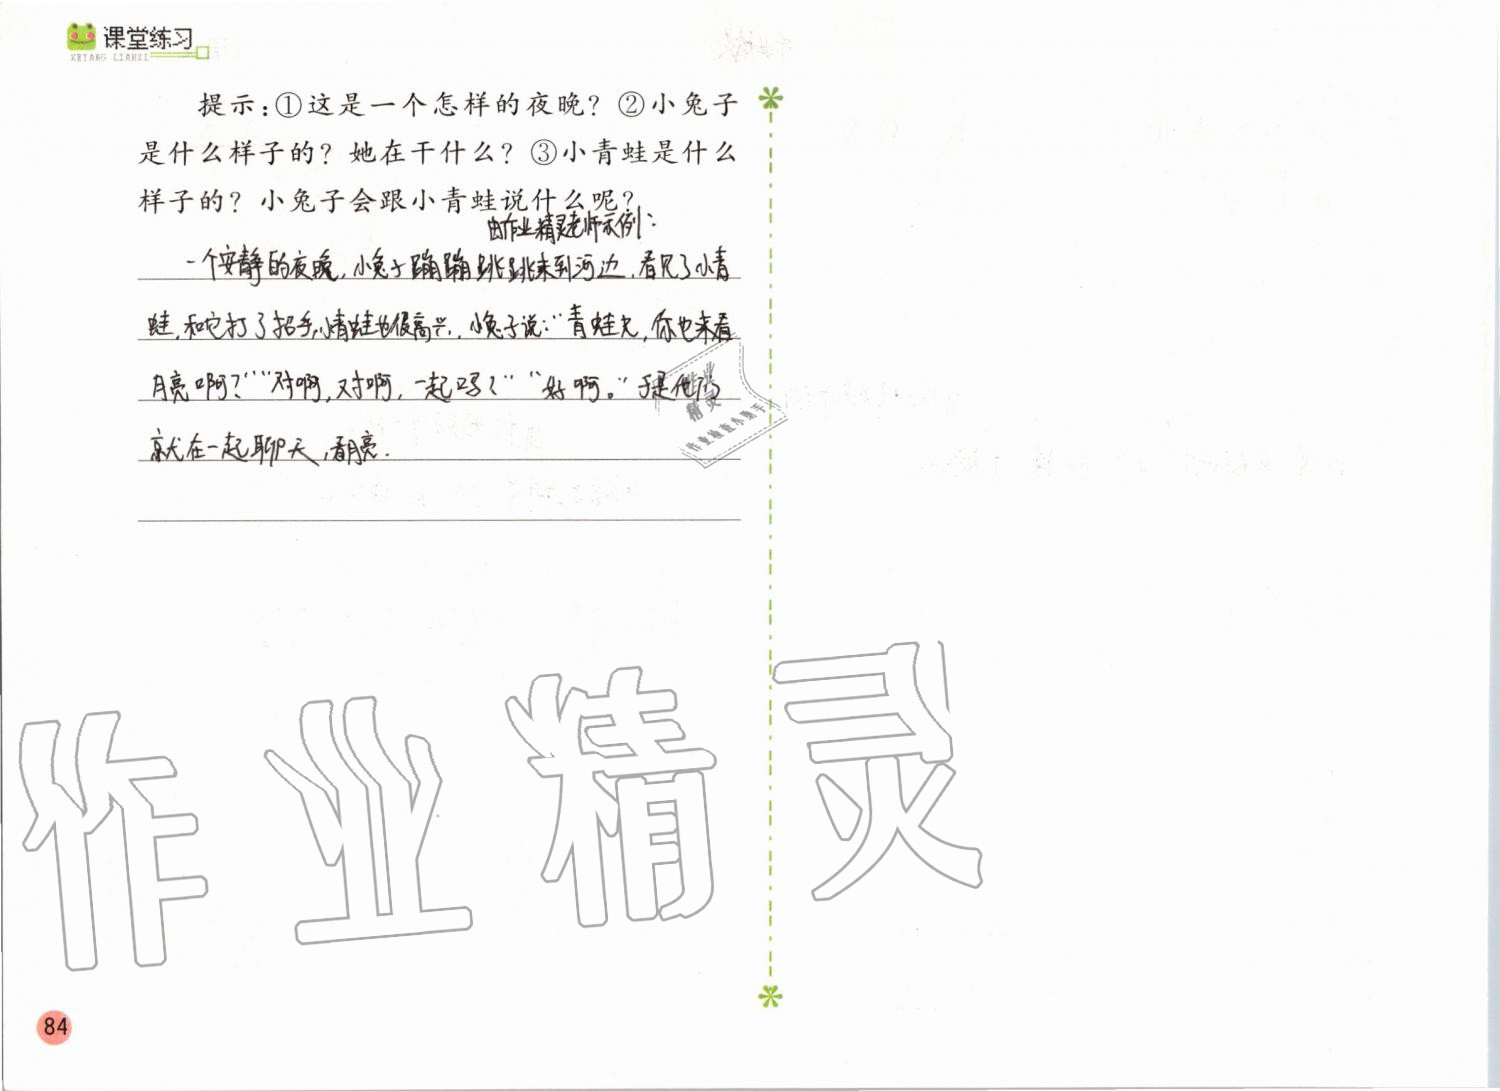 课堂练习
KETANG LIANXI
提示：①这是一个怎样的夜晚？②小兔子
是什么样子的？她在干什么？③小青蛙是什么
样子的？小兔子会跟小青蛙说什么呢？
由作业精灵老师示例：
一个安静的夜晚，小兔子蹦蹦跳跳来到河边，看见了小青
蛙，和它打了招手，小青蛙也很高兴，小兔子说：“青蛙兄，你也来看
月亮啊？”“对啊，对啊，一起吗？”“好啊。”于是他们
就在一起聊天，看月亮.
作业
精灵
作业检查小助手
作业精灵
84